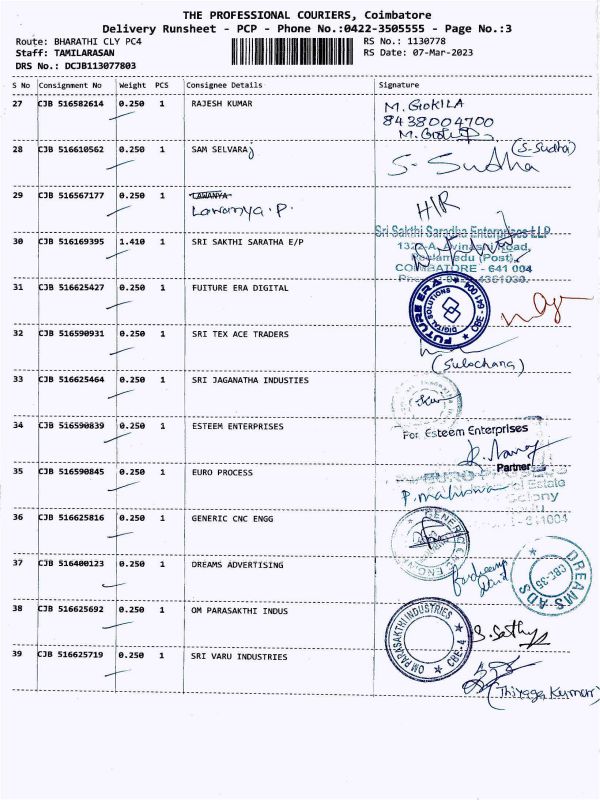 THE PROFESSIONAL COURIERS, Coimbatore
Delivery Runsheet - PCP - Phone No.:0422-3505555 - Page No.:3
Route: BHARATHI CLY PC4
RS No.: 1130778
Staff: TAMILARASAN
RS Date: 07-Mar-2023
DRS No.: DCJB113077803
S No Consignment No Weight PCS Consignee Details Signature
27 CJB 516582614 0.250 1 RAJESH KUMAR
M. GOKILA
8438004700
28 CJB 516610562 0.250 1 SAM SELVARAj
(S-Sudha)
S- Sudha
29 CJB 516567177 0.250 1 LAWANYA
Lawanya.P.
H/R
30 CJB 516169395 1.410 1 SRI SAKTHI SARATHA E/P
Sri Sakthi Saradha Enterprises LLP
1322-A, Avinashi Road,
Peelamedu (Post),
COIMBATORE - 641 004
31 CJB 516625427 0.250 1 FUITURE ERA DIGITAL
FUTURE ERA
DIGITAL SOLUTIONS
CBE - 641 004
32 CJB 516590931 0.250 1 SRI TEX ACE TRADERS
(Sulochana)
33 CJB 516625464 0.250 1 SRI JAGANATHA INDUSTIES
34 CJB 516590839 0.250 1 ESTEEM ENTERPRISES
For Esteem Enterprises
Partner
35 CJB 516590845 0.250 1 EURO PROCESS
Estate
Colony
36 CJB 516625816 0.250 1 GENERIC CNC ENGG
GENERIC
37 CJB 516400123 0.250 1 DREAMS ADVERTISING
DREAMS ADS
CBE-35
38 CJB 516625692 0.250 1 OM PARASAKTHI INDUS
OM PARASAKTHI INDUSTRIES
CBE-4
S. Sathya
39 CJB 516625719 0.250 1 SRI VARU INDUSTRIES
(Thiyaga Kumar)